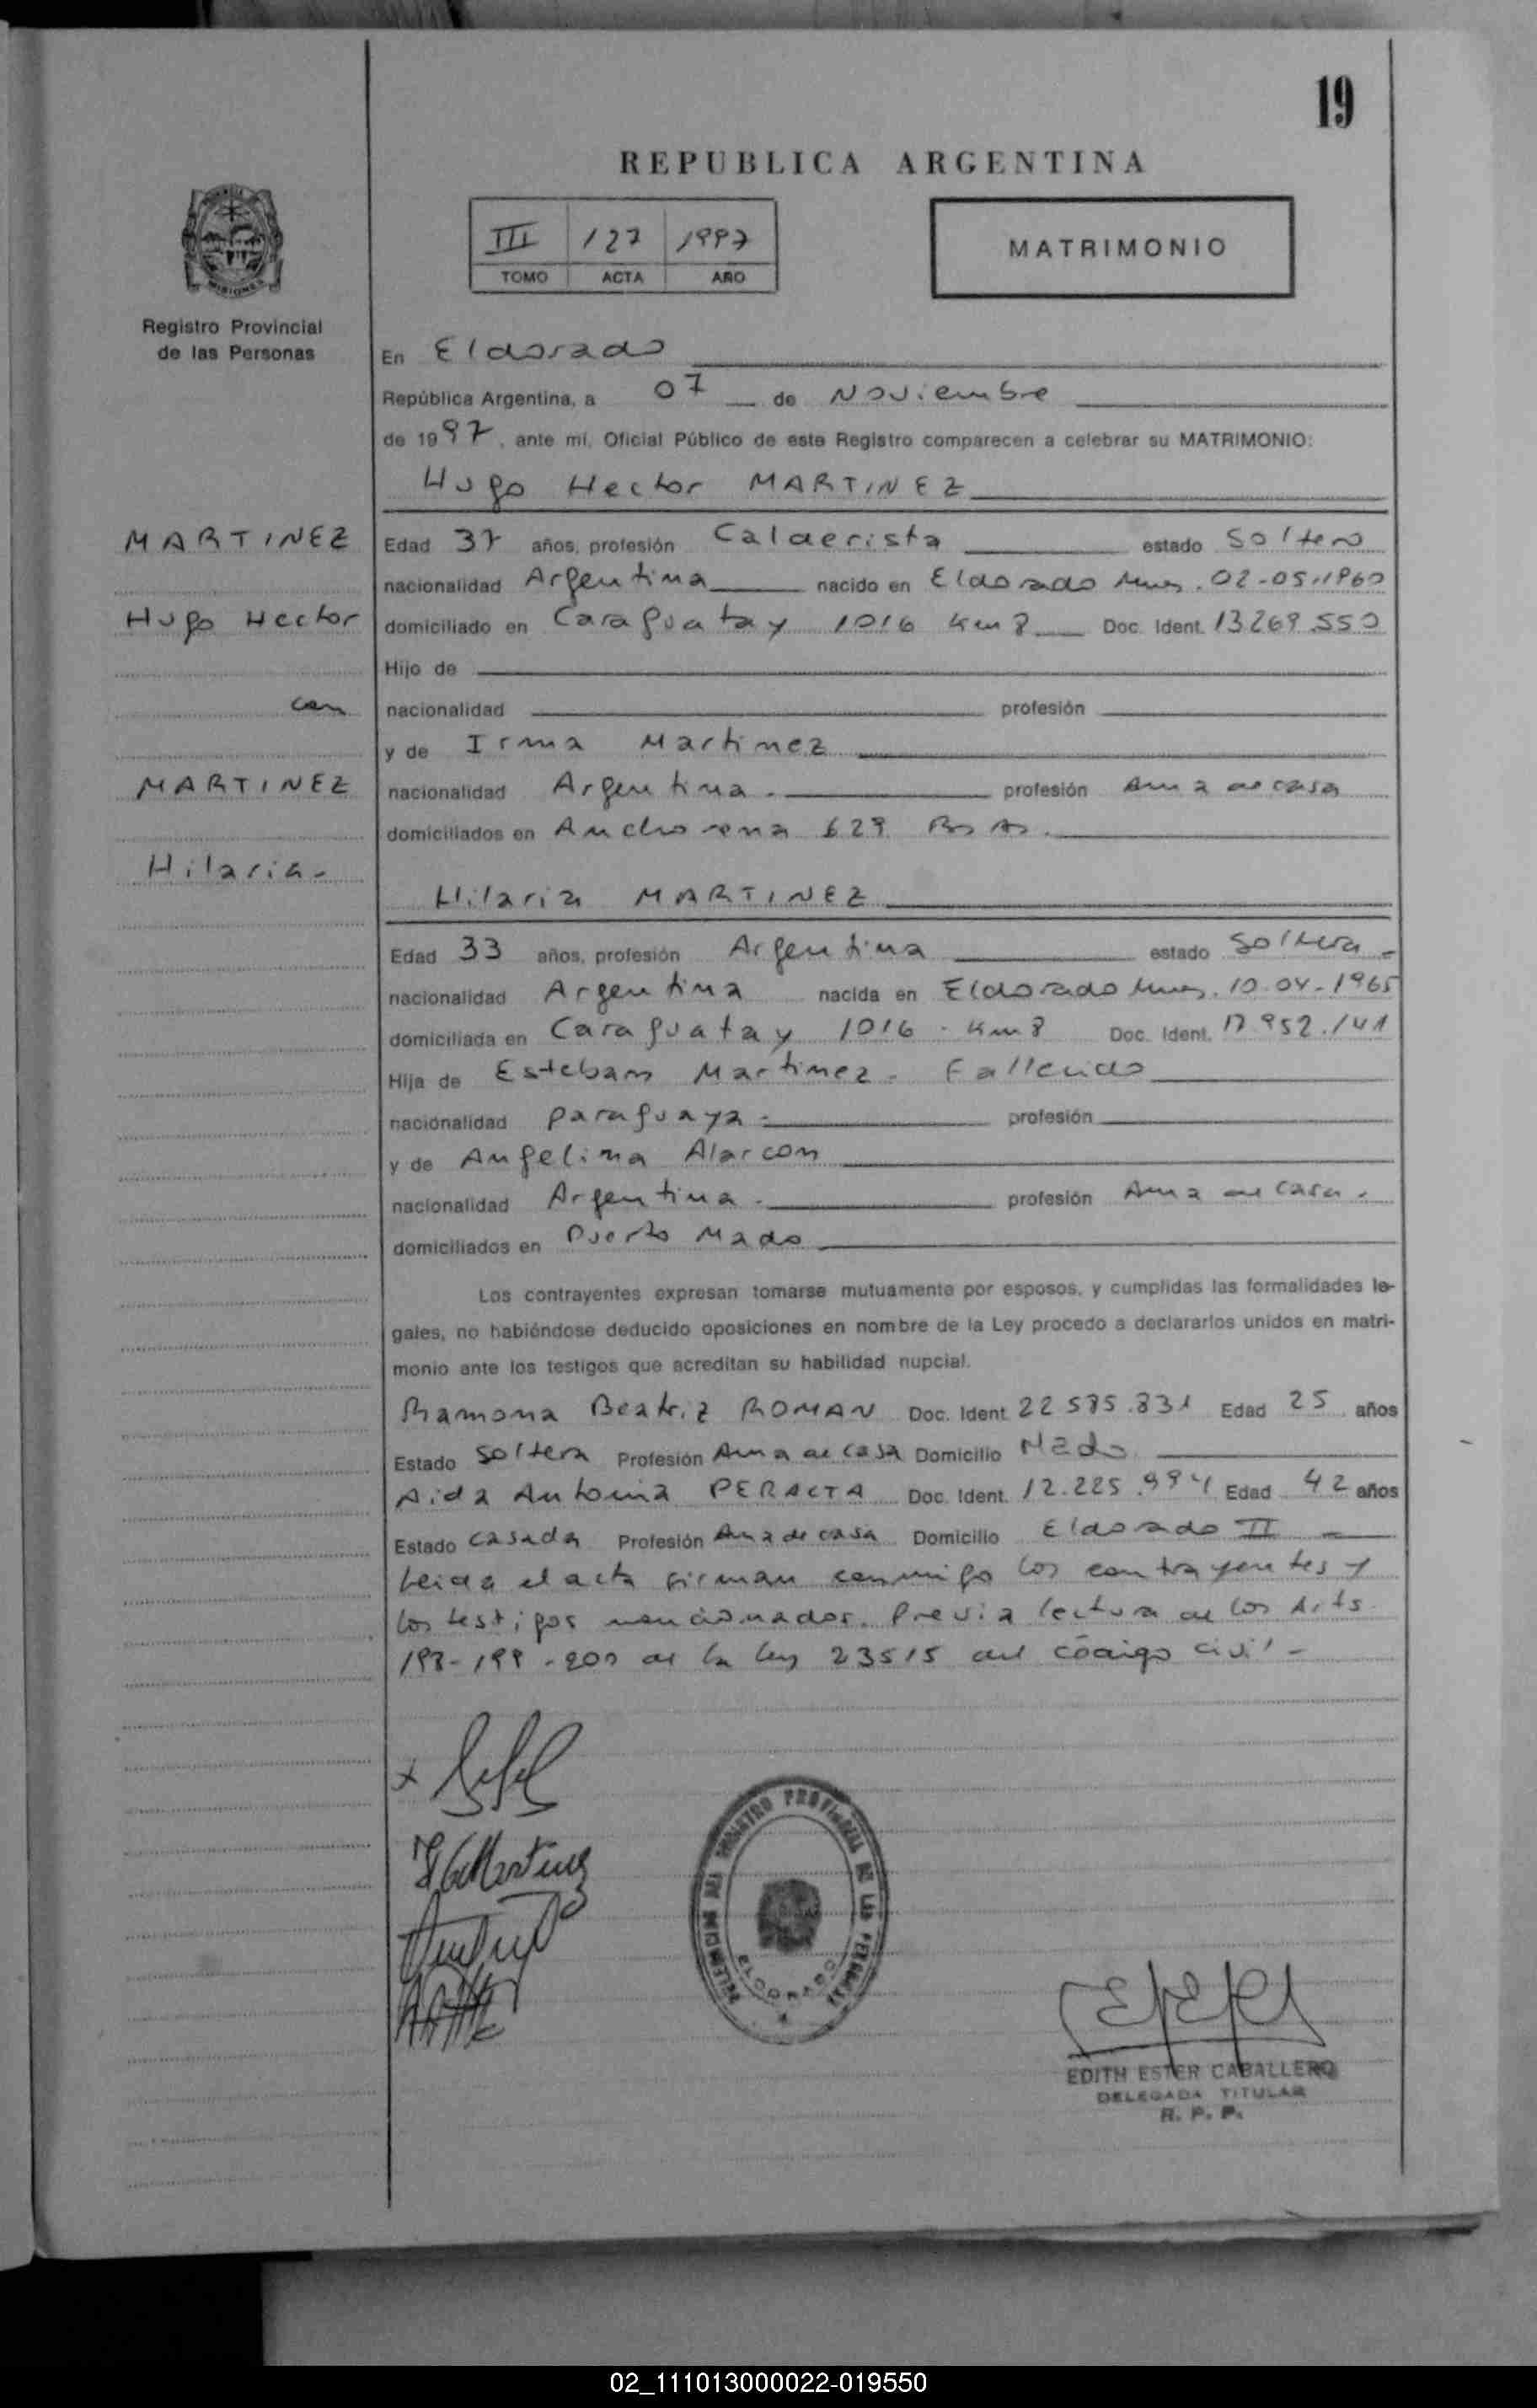 19
REPUBLICA ARGENTINA
III 127 1997
TOMO ACTA AÑO
MATRIMONIO
MISIONES
Registro Provincial
de las Personas
En Eldorado
República Argentina, a 07 de Noviembre
de 1997, ante mí, Oficial Público de este Registro comparecen a celebrar su MATRIMONIO:
Hugo Hector MARTINEZ
MARTINEZ
Hugo Hector
con
MARTINEZ
Hilaria.
Edad 37 años, profesión Calderista estado Soltero
nacionalidad Argentina nacido en Eldorado Mnes. 02-05-1960
domiciliado en Caraguatay 1016 Km 8 Doc. Ident. 13269.550
Hijo de
nacionalidad profesión
y de Irma Martinez
nacionalidad Argentina. profesión Ama de casa
domiciliados en Anchorena 629 Bs As.
Hilaria MARTINEZ
Edad 33 años, profesión Argentina estado Soltera
nacionalidad Argentina nacida en Eldorado Mnes. 10-04-1965
domiciliada en Caraguatay 1016 - Km 8 Doc. Ident. 17.952.141
Hija de Esteban Martinez - Fallecido
nacionalidad paraguaya. profesión
y de Angelina Alarcon
nacionalidad Argentina. profesión Ama de casa.
domiciliados en Puerto Mado
Los contrayentes expresan tomarse mutuamente por esposos, y cumplidas las formalidades le-
gales, no habiéndose deducido oposiciones en nombre de la Ley procedo a declararlos unidos en matri-
monio ante los testigos que acreditan su habilidad nupcial.
Ramona Beatriz ROMAN Doc. Ident. 22 585.831 Edad 25 años
Estado Soltera Profesión Ama de casa Domicilio Mado
Aida Antonia PERALTA Doc. Ident. 12.225.994 Edad 42 años
Estado Casada Profesión Ama de casa Domicilio Eldorado II
Leida el acta firman conmigo los contrayentes y
los testigos mencionados. Previa lectura de los Arts
198-199-200 de la ley 23515 del código civil -
REGISTRO PROVINCIAL DE LAS PERSONAS
ELDORADO
EDITH ESTER CABALLERO
DELEGADA TITULAR
R. P. P.
02_111013000022-019550